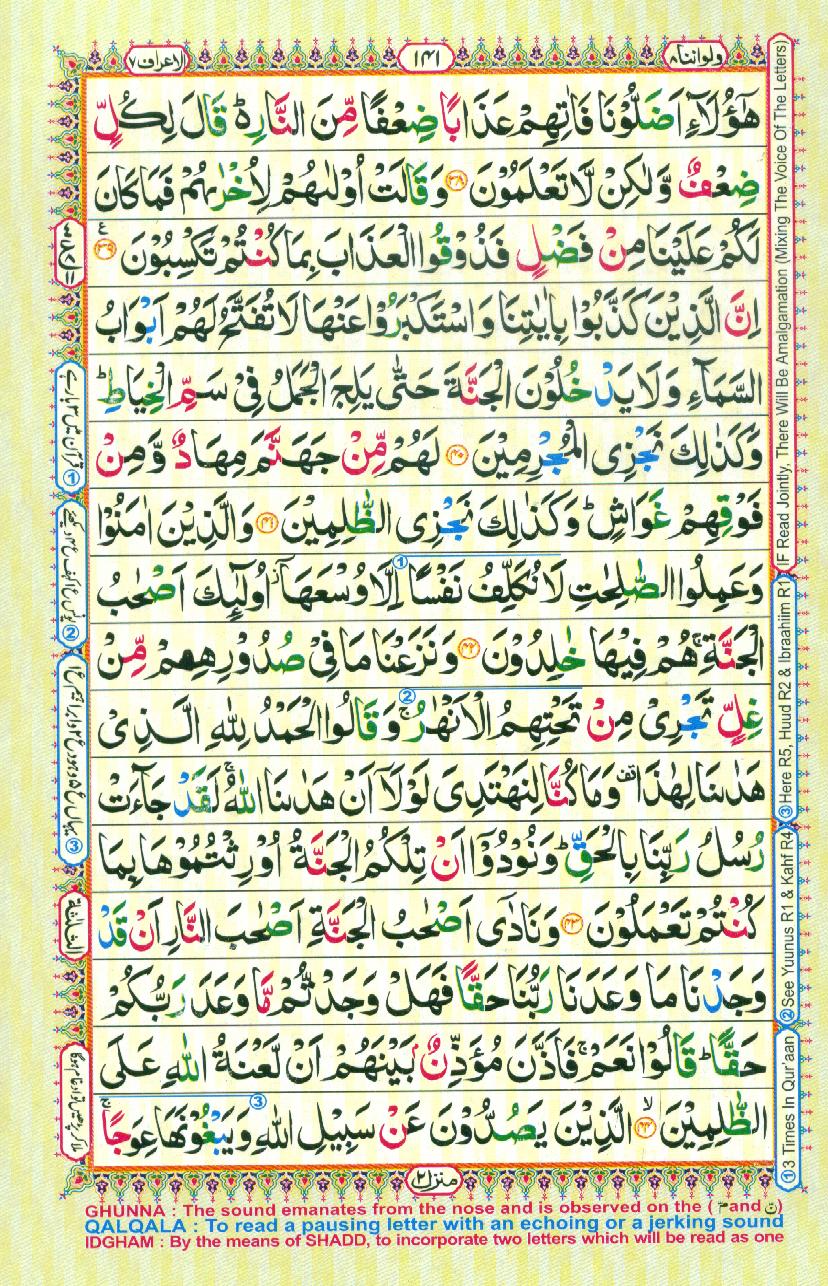 ولواننا ۸
۱۴۱
الاعراف ۷
هٰٓؤُلَآءِ اَضَلُّوْنَا فَاٰتِهِمْ عَذَابًا ضِعْفًا مِّنَ النَّارِ ؕ۬ قَالَ لِكُلٍّ
ضِعْفٌ وَّلٰكِنْ لَّا تَعْلَمُوْنَ ﴿۳۸﴾ وَقَالَتْ اُوْلٰىهُمْ لِاُخْرٰىهُمْ فَمَا كَانَ
لَكُمْ عَلَيْنَا مِنْ فَضْلٍ فَذُوْقُوا الْعَذَابَ بِمَا كُنْتُمْ تَكْسِبُوْنَ ﴿۳۹﴾
اِنَّ الَّذِيْنَ كَذَّبُوْا بِاٰيٰتِنَا وَاسْتَكْبَرُوْا عَنْهَا لَا تُفَتَّحُ لَهُمْ اَبْوَابُ
السَّمَآءِ وَلَا يَدْخُلُوْنَ الْجَنَّةَ حَتّٰى يَلِجَ الْجَمَلُ فِيْ سَمِّ الْخِيَاطِ ؕ
وَكَذٰلِكَ نَجْزِى الْمُجْرِمِيْنَ ﴿۴۰﴾ لَهُمْ مِّنْ جَهَنَّمَ مِهَادٌ وَّمِنْ
فَوْقِهِمْ غَوَاشٍ ؕ وَكَذٰلِكَ نَجْزِى الظّٰلِمِيْنَ ﴿۴۱﴾ وَالَّذِيْنَ اٰمَنُوْا
وَعَمِلُوا الصّٰلِحٰتِ لَا نُكَلِّفُ نَفْسًا اِلَّا وُسْعَهَاۤ ؗ اُولٰٓئِكَ اَصْحٰبُ
الْجَنَّةِ ۚ هُمْ فِيْهَا خٰلِدُوْنَ ﴿۴۲﴾ وَنَزَعْنَا مَا فِيْ صُدُوْرِهِمْ مِّنْ
غِلٍّ تَجْرِيْ مِنْ تَحْتِهِمُ الْاَنْهٰرُ ۚ وَقَالُوا الْحَمْدُ لِلّٰهِ الَّذِيْ
هَدٰىنَا لِهٰذَا ۫ وَمَا كُنَّا لِنَهْتَدِيَ لَوْلَاۤ اَنْ هَدٰىنَا اللّٰهُ ۚ لَقَدْ جَآءَتْ
رُسُلُ رَبِّنَا بِالْحَقِّ ؕ وَنُوْدُوْۤا اَنْ تِلْكُمُ الْجَنَّةُ اُوْرِثْتُمُوْهَا بِمَا
كُنْتُمْ تَعْمَلُوْنَ ﴿۴۳﴾ وَنَادٰۤى اَصْحٰبُ الْجَنَّةِ اَصْحٰبَ النَّارِ اَنْ قَدْ
وَجَدْنَا مَا وَعَدَنَا رَبُّنَا حَقًّا فَهَلْ وَجَدْتُّمْ مَّا وَعَدَ رَبُّكُمْ
حَقًّا ؕ قَالُوْا نَعَمْ ۚ فَاَذَّنَ مُؤَذِّنٌۢ بَيْنَهُمْ اَنْ لَّعْنَةُ اللّٰهِ عَلَى
الظّٰلِمِيْنَ ﴿۴۴﴾ الَّذِيْنَ يَصُدُّوْنَ عَنْ سَبِيْلِ اللّٰهِ وَيَبْغُوْنَهَا عِوَجًا ۚ
منزل ۲
IF Read Jointly, There Will Be Amalgamation (Mixing The Voice Of The Letters)
③Here R5, Huud R2 & Ibraahiim R1
②See Yuunus R1 & Kahf R4
①3 Times In Qur'aan
GHUNNA : The sound emanates from the nose and is observed on the ( مّ and نّ )
QALQALA : To read a pausing letter with an echoing or a jerking sound
IDGHAM : By the means of SHADD, to incorporate two letters which will be read as one